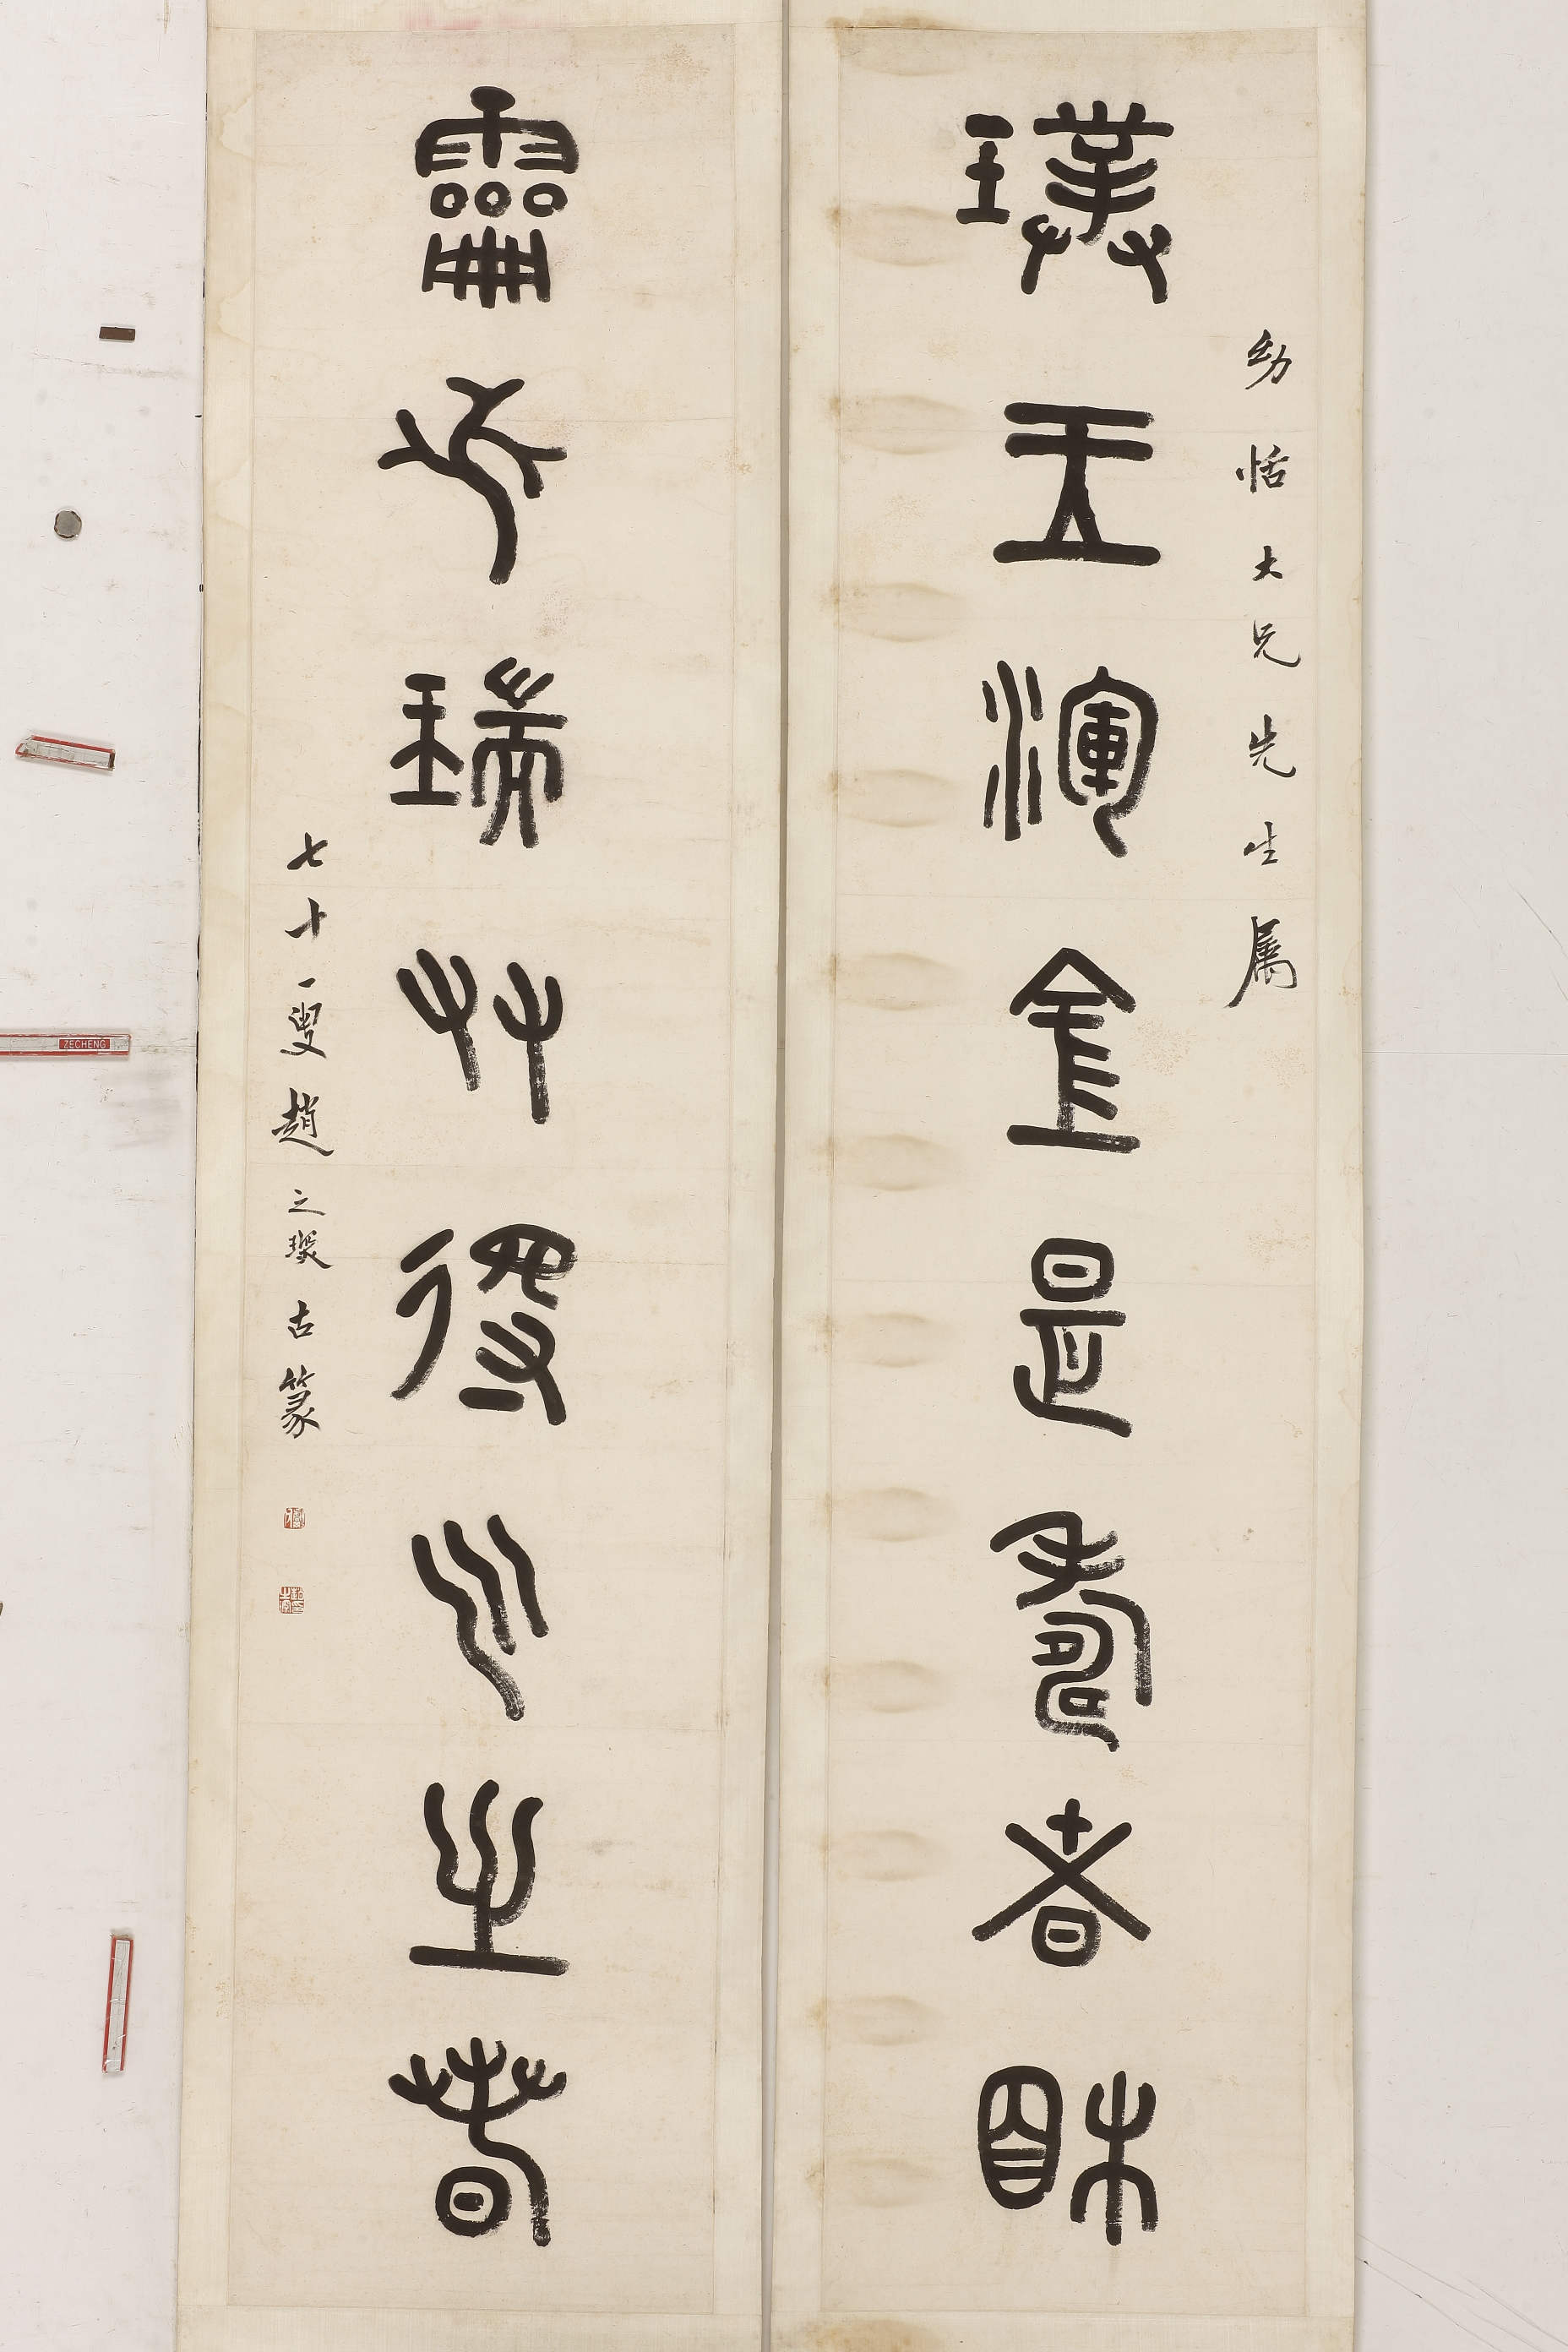 幼恬大兄先生属
璞玉渾金是壽者相
靈瑞艸得气之春
七十一叟趙之琛古篆
ZECHENG